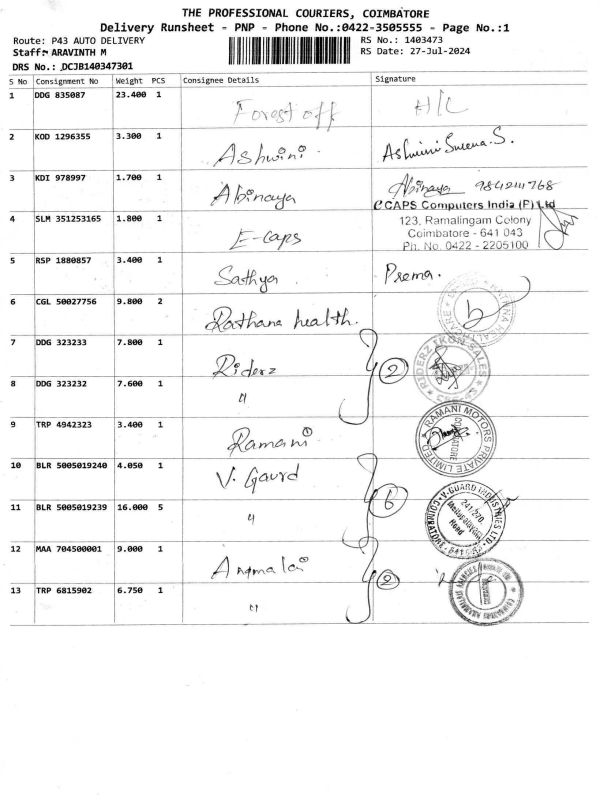 THE PROFESSIONAL COURIERS, COIMBATORE
Delivery Runsheet - PNP - Phone No.:0422-3505555 - Page No.:1
Route: P43 AUTO DELIVERY
RS No.: 1403473
Staff: ARAVINTH M
RS Date: 27-Jul-2024
DRS No.: DCJB140347301
S No Consignment No Weight PCS Consignee Details Signature
1 DDG 835087 23.400 1 Forest off H/L
2 KOD 1296355 3.300 1 Ashwini Ashwini Sweena. S.
3 KDI 978997 1.700 1 Abinaya Abinaya 9842111768
4 SLM 351253165 1.800 1 E-caps
CAPS Computers India (P) Ltd
123, Ramalingam Colony
Coimbatore - 641 043
Ph. No. 0422 - 2205100
5 RSP 1880857 3.400 1 Sathya Prema.
6 CGL 50027756 9.800 2 Rathana health.
7 DDG 323233 7.800 1 Riderz 2 RIDERZ IKON SALES
8 DDG 323232 7.600 1 "
9 TRP 4942323 3.400 1 Ramani 1 RAMANI MOTORS PRIVATE LIMITED COIMBATORE
10 BLR 5005019240 4.050 1 V. Gaurd 6 V-GUARD INDUSTRIES LTD.
11 BLR 5005019239 16.000 5 "
12 MAA 704500001 9.000 1 Anamalai 2
13 TRP 6815902 6.750 1 "